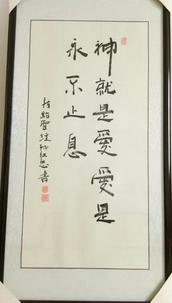 神就是愛愛是
永不止息